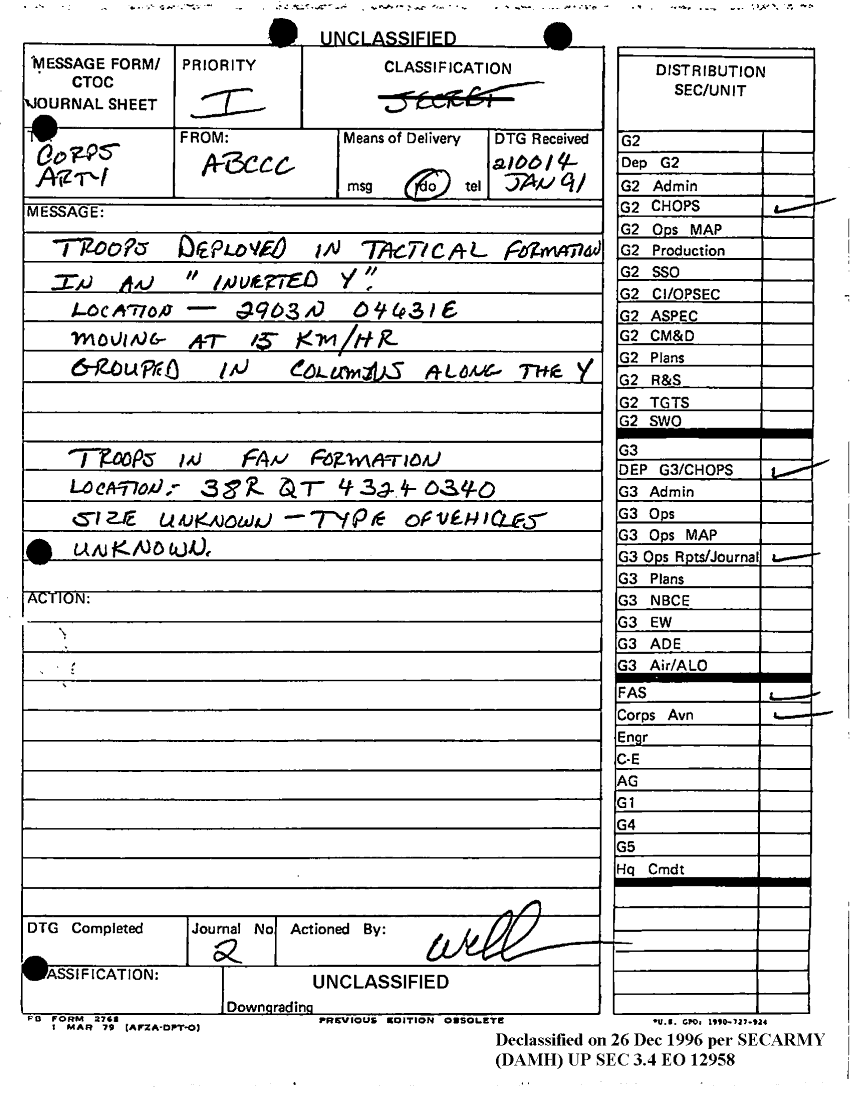 UNCLASSIFIED
MESSAGE FORM/
CTOC
JOURNAL SHEET
PRIORITY
I
CLASSIFICATION
SECRET
T
CORPS
ARTY
FROM:
ABCCC
Means of Delivery
msg rdo tel
DTG Received
210014
JAN 91
MESSAGE:
TROOPS DEPLOYED IN TACTICAL FORMATION
IN AN "INVERTED Y".
LOCATION — 2903N 04631E
MOVING AT 15 KM/HR
GROUPED IN COLUMNS ALONG THE Y
TROOPS IN FAN FORMATION
LOCATION:- 38R QT 4324 0340
SIZE UNKNOWN — TYPE OF VEHICLES
UNKNOWN.
ACTION:
DTG Completed
Journal No
2
Actioned By:
ASSIFICATION:
UNCLASSIFIED
Downgrading
FB FORM 2768
1 MAR 79 (AFZA-DPT-O)
PREVIOUS EDITION OBSOLETE
DISTRIBUTION
SEC/UNIT
G2
Dep G2
G2 Admin
G2 CHOPS
G2 Ops MAP
G2 Production
G2 SSO
G2 CI/OPSEC
G2 ASPEC
G2 CM&D
G2 Plans
G2 R&S
G2 TGTS
G2 SWO
G3
DEP G3/CHOPS
G3 Admin
G3 Ops
G3 Ops MAP
G3 Ops Rpts/Journal
G3 Plans
G3 NBCE
G3 EW
G3 ADE
G3 Air/ALO
FAS
Corps Avn
Engr
C-E
AG
G1
G4
G5
Hq Cmdt
*U.S. GPO: 1990-727-924
Declassified on 26 Dec 1996 per SECARMY
(DAMH) UP SEC 3.4 EO 12958